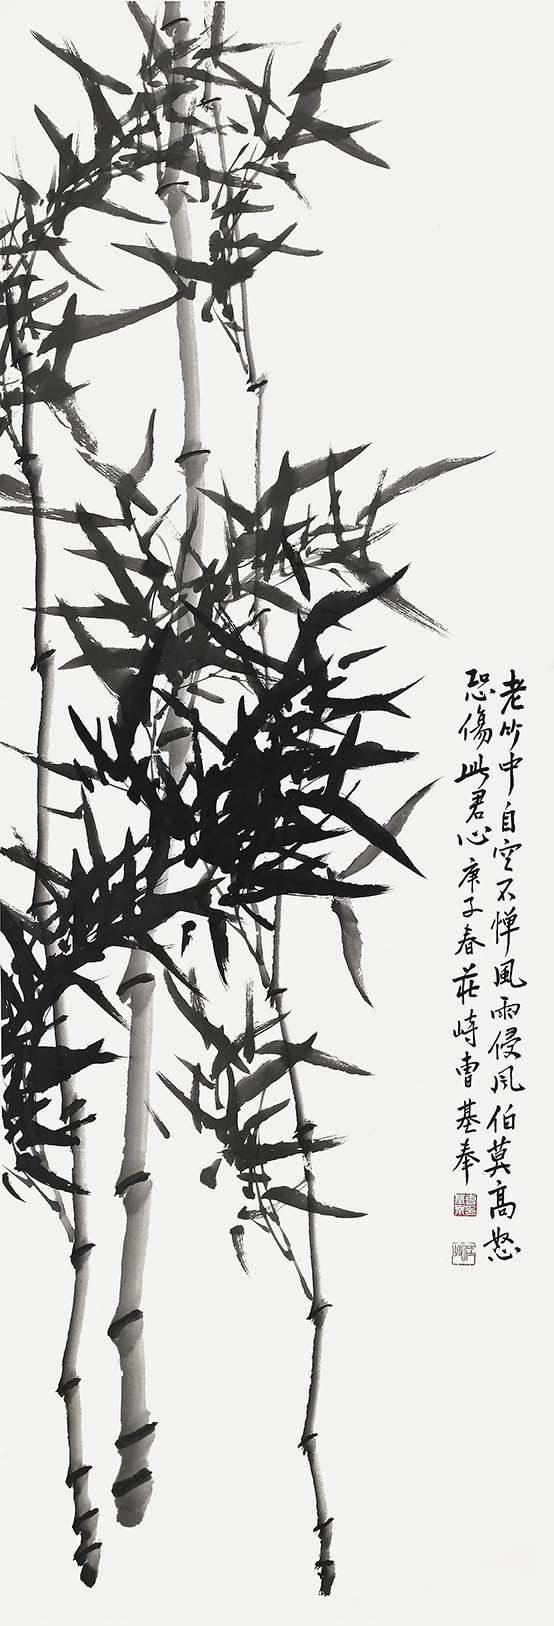 老竹中自空不惮風雨侵风伯莫高怒
恐傷此君心庚子春莊峙曹基奉